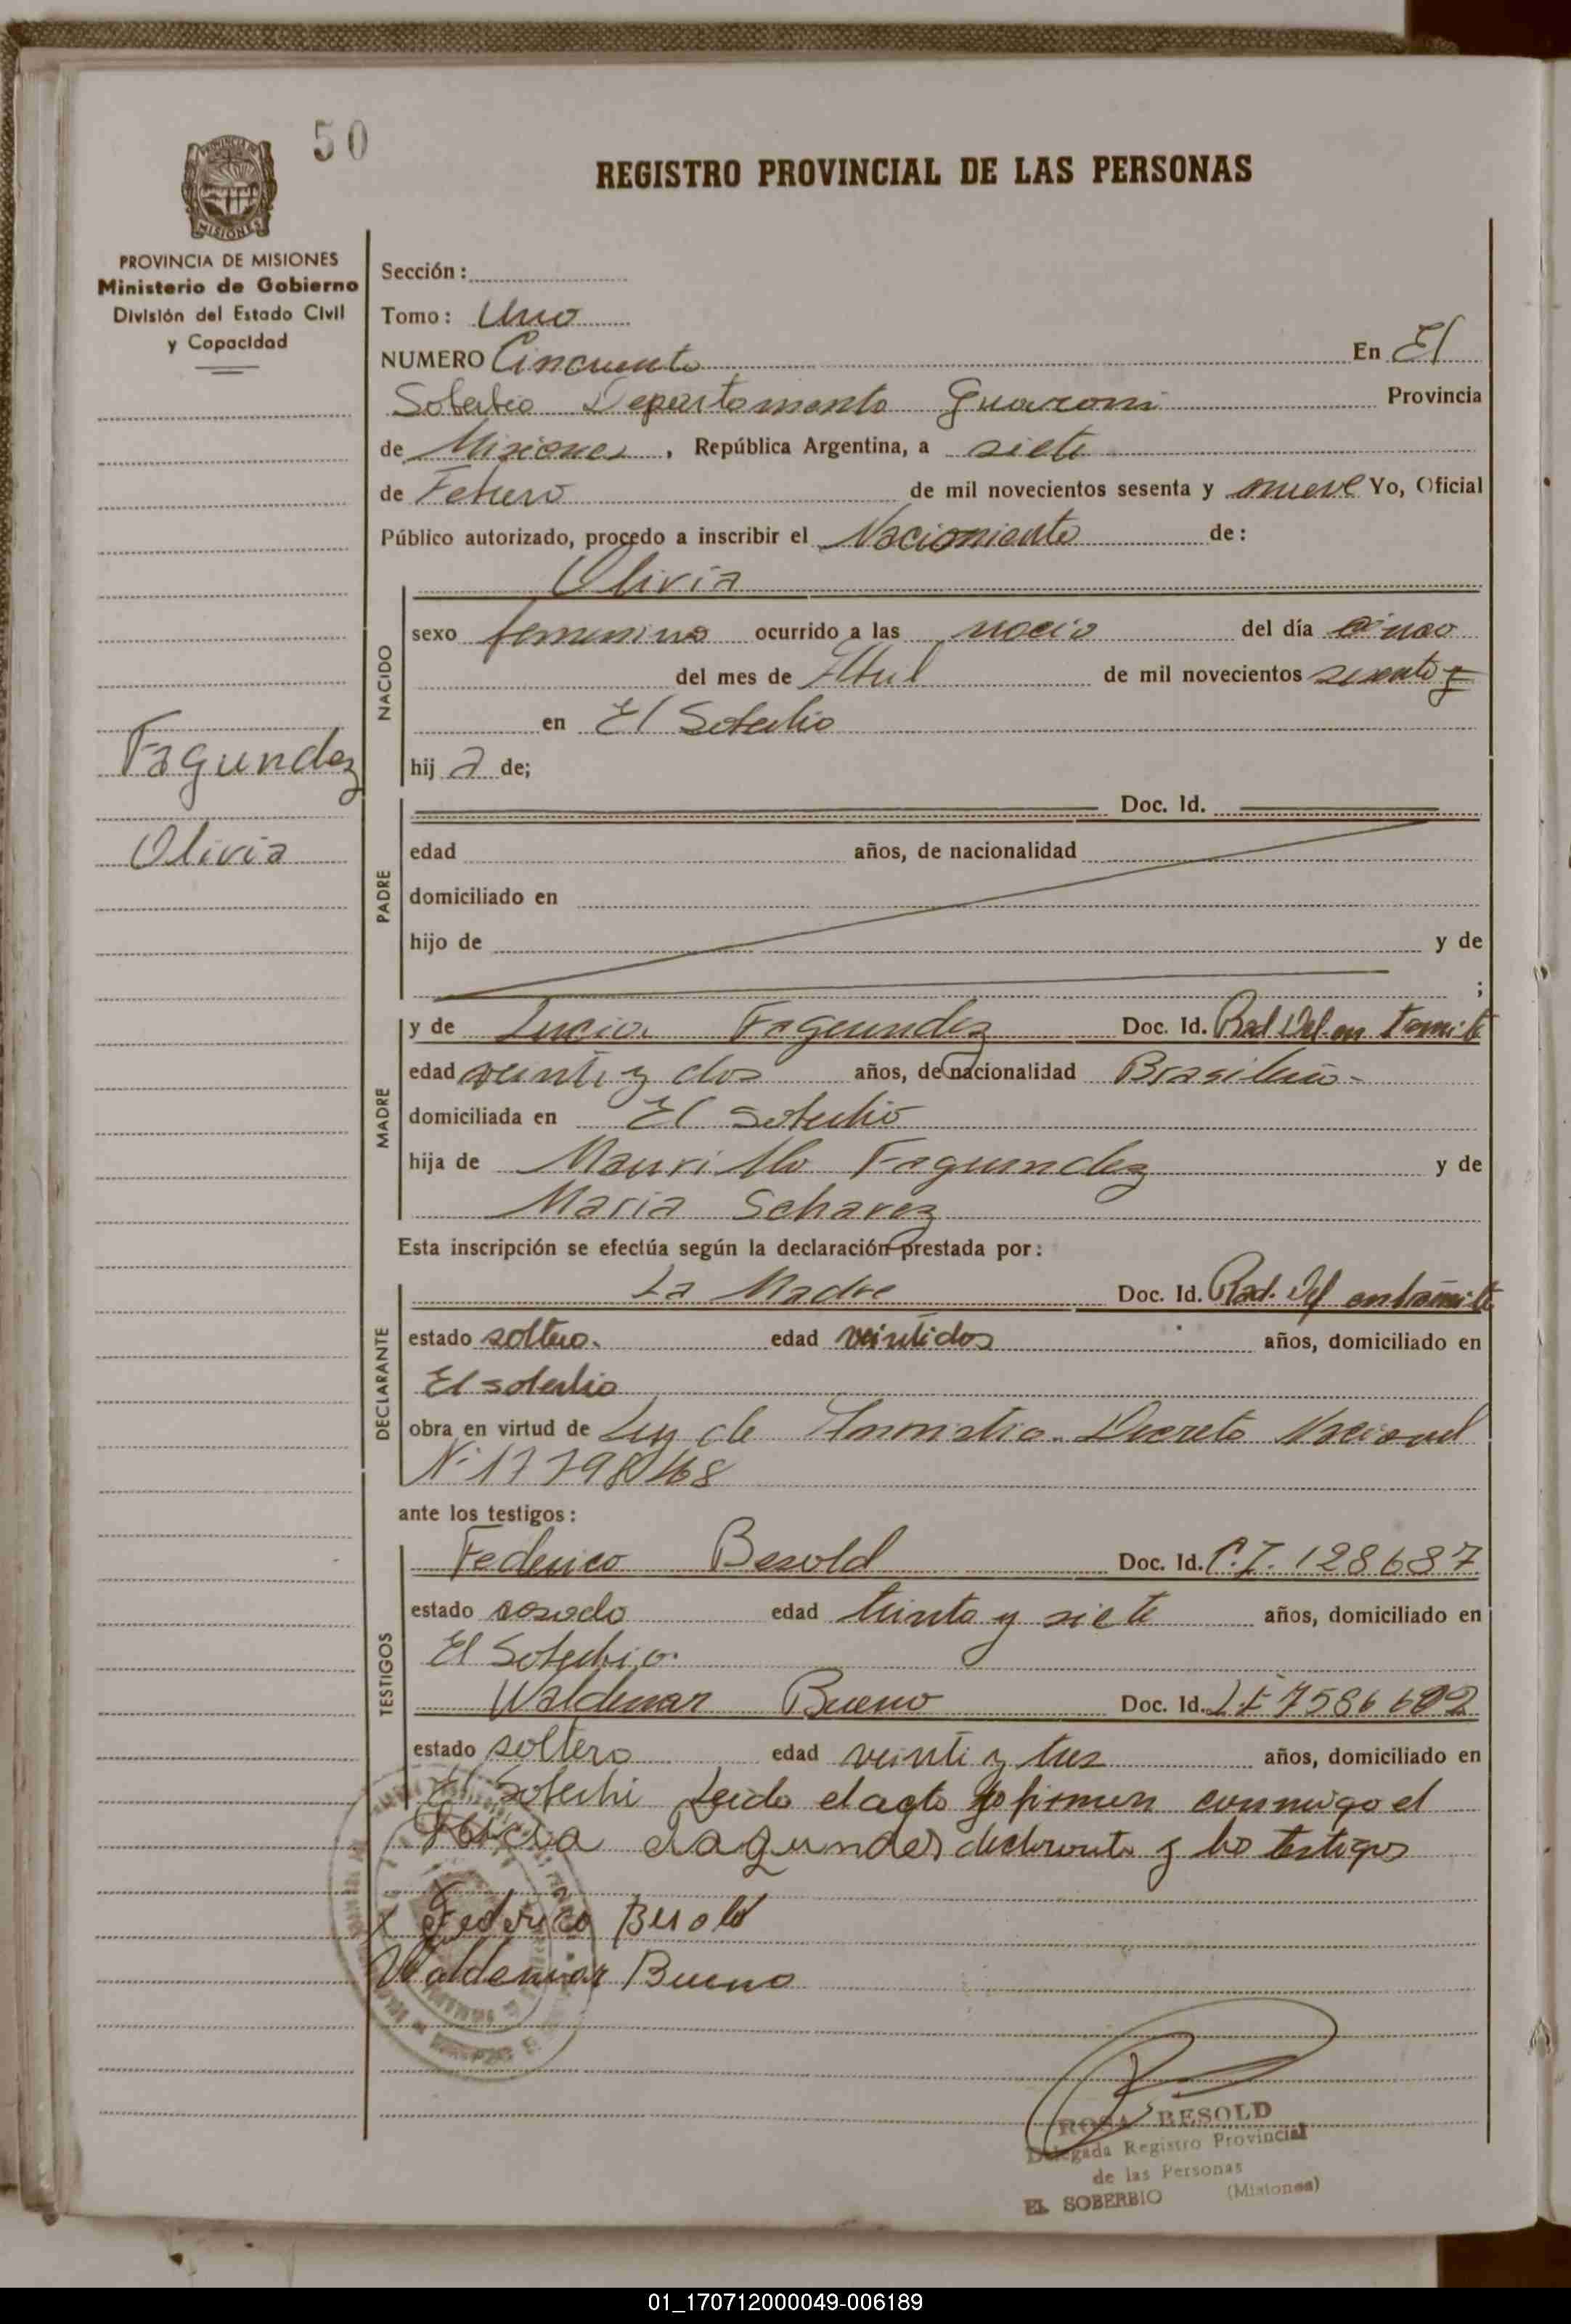 50
REGISTRO PROVINCIAL DE LAS PERSONAS
PROVINCIA DE MISIONES
Ministerio de Gobierno
División del Estado Civil
y Capacidad
Fagundez
Olivia
Sección:
Tomo: Uno
NUMERO Cincuenta En El
Soberbio Departamento Guarani Provincia
de Misiones, República Argentina, a siete
de Febrero de mil novecientos sesenta y nueve Yo, Oficial
Público autorizado, procedo a inscribir el Nacimiento de:
NACIDO
Olivia
sexo femenino ocurrido a las del día cinco
del mes de Abril de mil novecientos sesenta y
en El Soberbio
hij a de;
PADRE
Doc. Id.
edad años, de nacionalidad
domiciliado en
hijo de y de
;
MADRE
y de Lucia Fagundez Doc. Id. Rad Def. en tramite
edad veinti y dos años, de nacionalidad Brasileña-
domiciliada en El Soberbio
hija de Maurillo Fagundez y de
Maria Schavez
Esta inscripción se efectúa según la declaración prestada por:
DECLARANTE
La Madre Doc. Id. Rad. Def en tramite
estado soltera. edad veintidos años, domiciliado en
El soberbio
obra en virtud de Ley de Amnistia. Decreto Nacional
Nº 17798/68
ante los testigos:
TESTIGOS
Federico Besold Doc. Id. C.I. 128687
estado casado edad treinta y siete años, domiciliado en
El Soberbio.
Waldemar Bueno Doc. Id. L.E 7586602
estado soltero edad veinti y tres años, domiciliado en
El Soberbi Leida el acta firman conmigo el
Lucia Fagundes declarante y los testigos
x Federico Besold
Waldemar Bueno
ROSA BESOLD
Delegada Registro Provincial
de las Personas
EL SOBERBIO (Misiones)
01_170712000049-006189